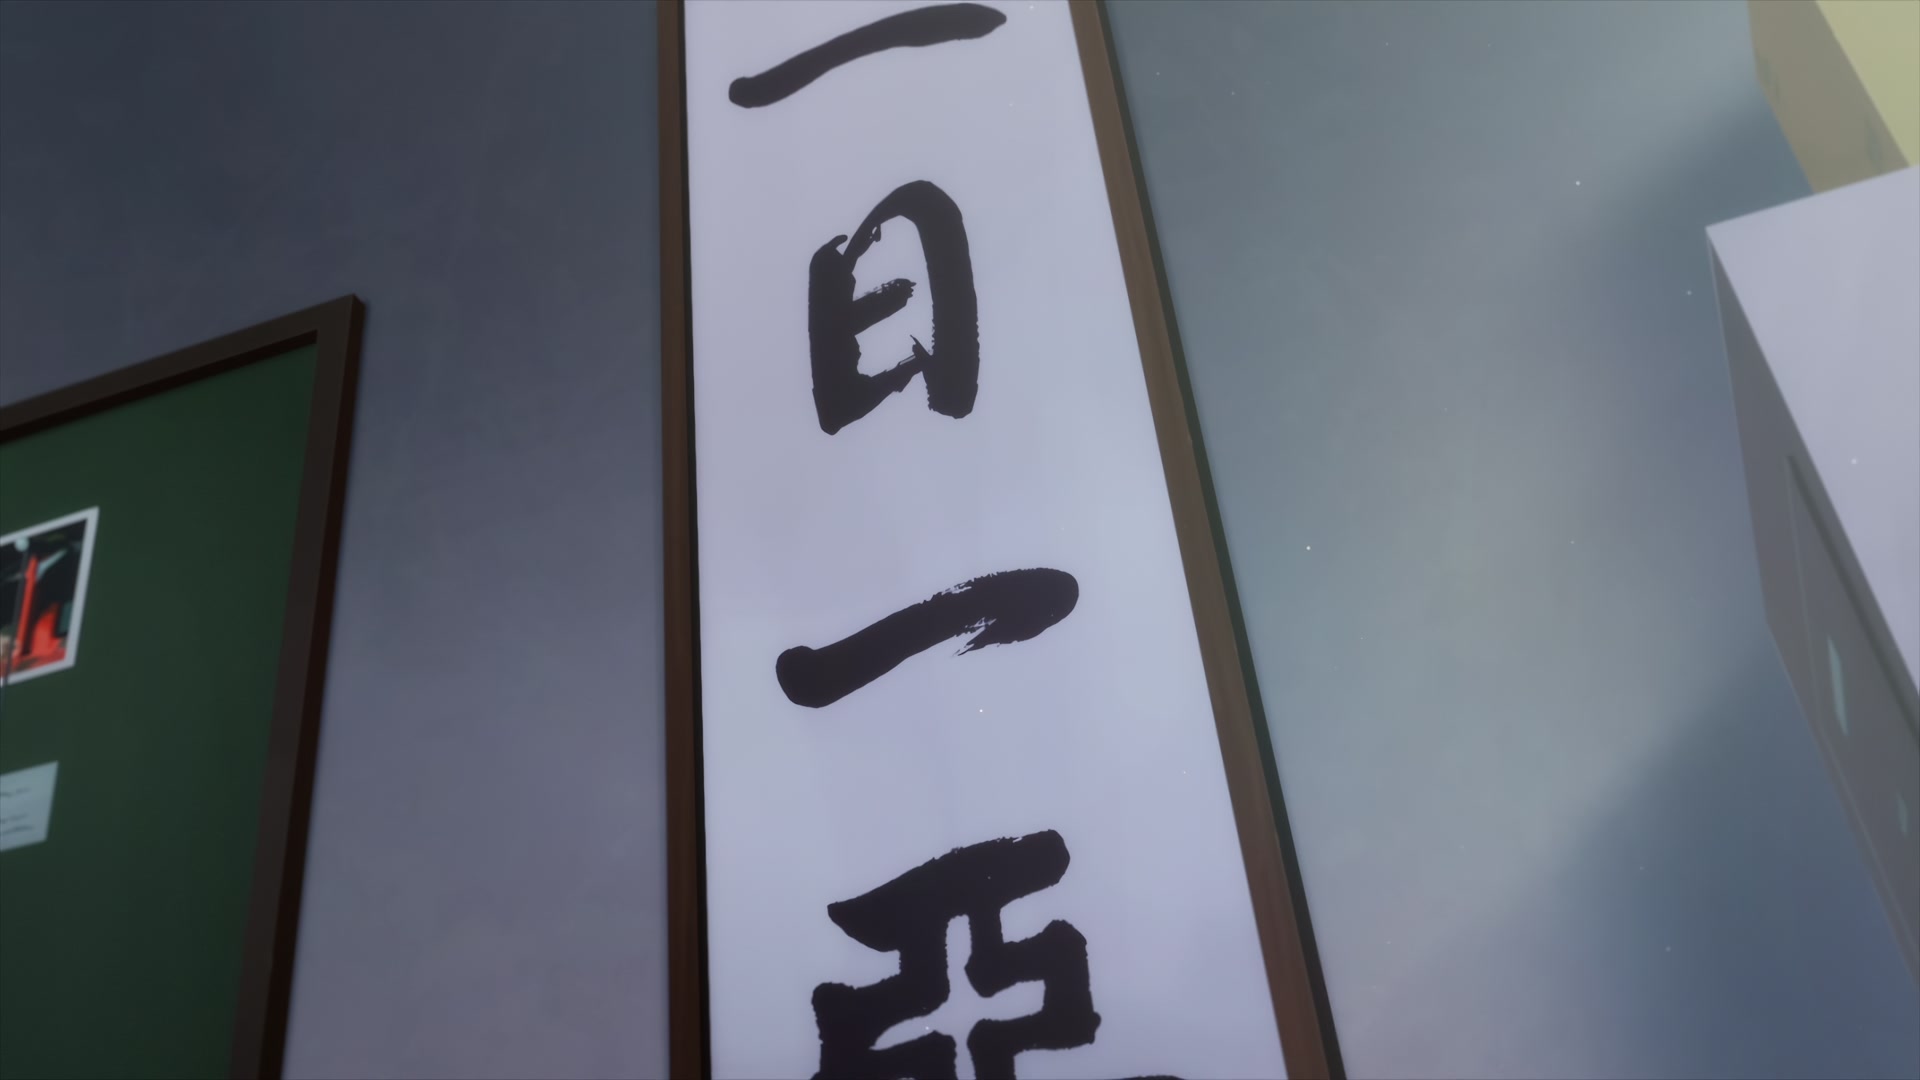 一日一